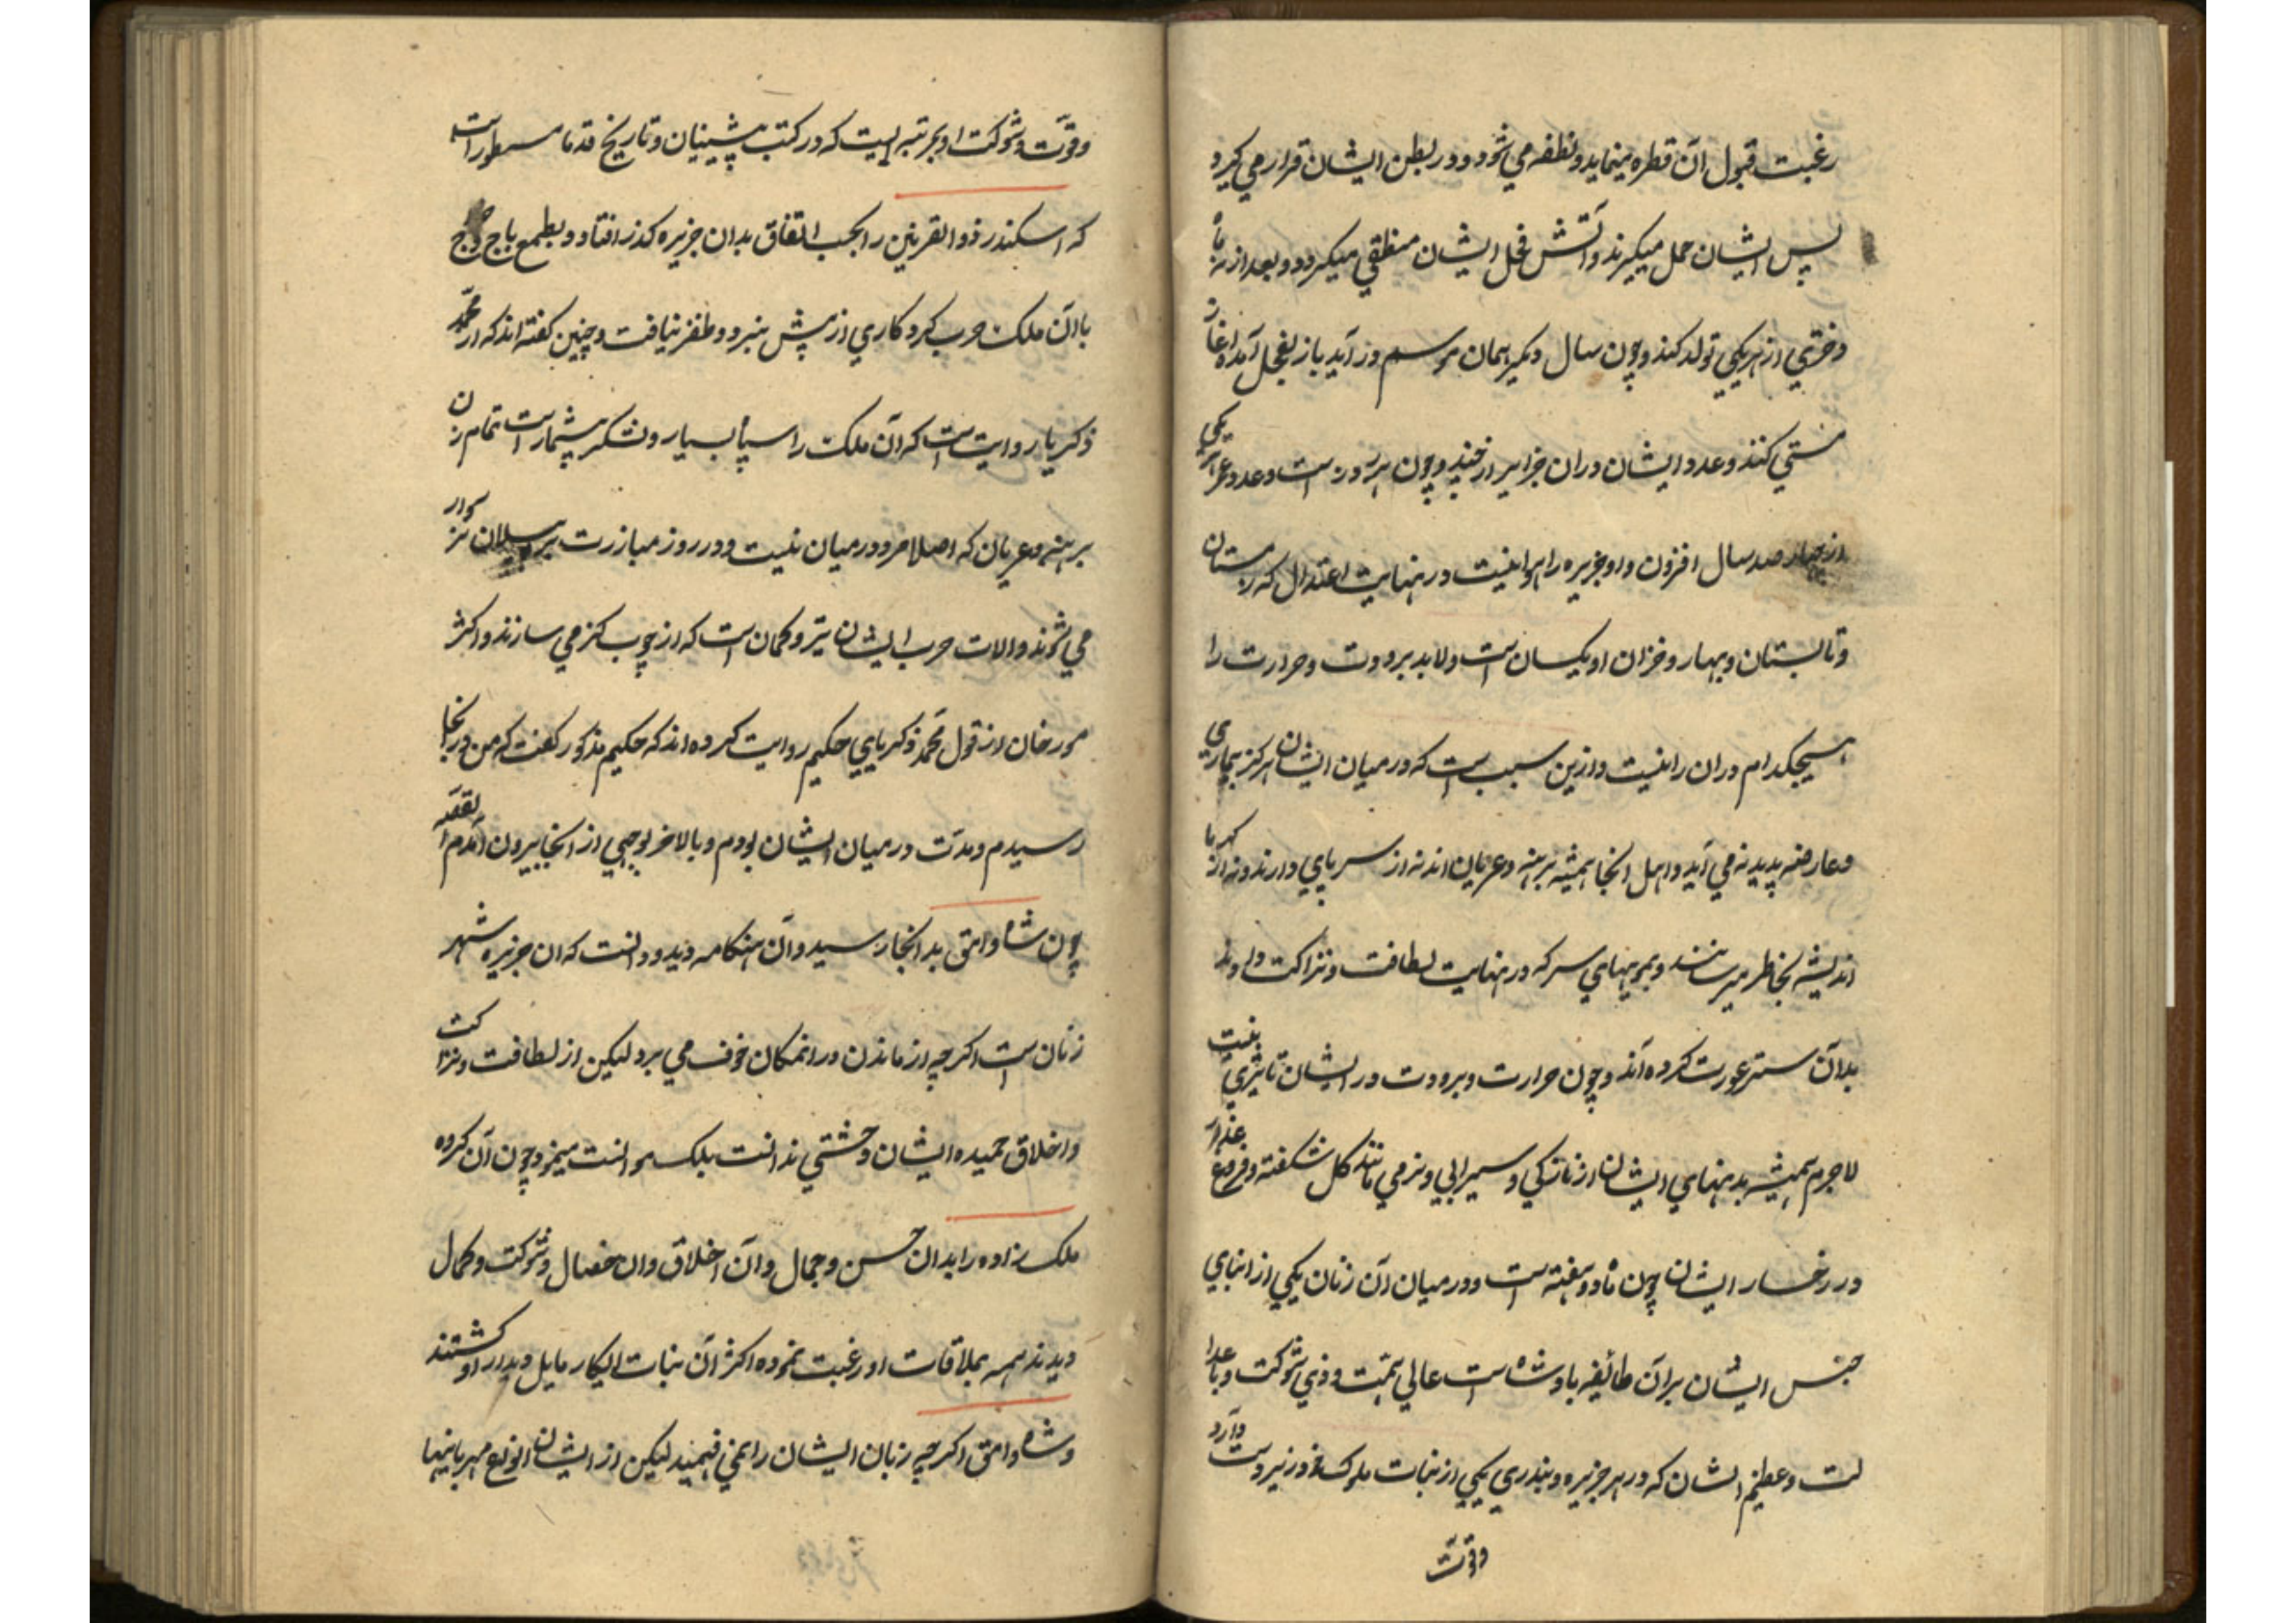 رغبت قبول آن قطره مینماید و نطفه می شود و در بطن ایشان قرار می گیرد
پس ایشان حمل میگیرند و آتش فحل ایشان منطفی میگردد و بعد از نه ماه
دختری از هر یکی تولد کند و چون سال دیگر همان موسم در آید باز بفحل آمده اغاز
مستی کنند و عدد ایشان دران جزایر از و چون است و عدد عمر هر یکی
از چهار صد سال افزون و او جزیره را هوائیست در نهایت اعتدال که زمستان
و تابستان و بهار و خزان او یکسان است ولابد برودت و حرارت را
هیچکدام دران راه نیست و ازین سبب است که در میان ایشان هرگز بیماری
و عارضه پدید نه می آید و اهل انجا همیشه برهنه و عریان اند نه از سرپای دارند و نه از کهربا
اندیشه بخاطر میرسانند و بمویهای سر که در نهایت لطافت و نزاکت دارند
بدان ستر عورت کرده اند و چون حرارت و برودت در ایشان تاثیری نیست
لاجرم همیشه بدنهای ایشان از نازکی و سیرابی و نرمی مانند گل شکفته و فروغ عذار
در رخسار ایشان چون ماه دو هفته است و در میان آن زنان یکی از ابنای
جنس ایشان بران طائفه بادشاه است عالی همت و ذی شوکت و با عدا
لت و عظیم الشان که در هر جزیره و بندری یکی از بنات ملوک فرزیردست دارد
وقوت
وقوت و شوکت او بمرتبه ایست که در کتب پیشینیان و تاریخ قدما مسطور است
که اسکندر ذوالقرنین را بحسب اتفاق بدان جزیره گذر افتاد و بطمع باج و خراج
با ان ملکه حرب کرد کاری از پیش نبرد و ظفر نیافت و چنین گفته اند که از محمد
ذکریا روایت است که آن ملکه را سپاه بسیار و لشکر بیشمار است تمام زن
برهنه و عریان که اصلا مرد در میان نیست و در روز مبازرت بر پیلان نر سوار
می شوند و الات حرب ایشان تیر و کمان است که از چوب کنز می سازند و اکثر
مورخان از قول محمد ذکریای حکیم روایت کرده اند که حکیم مذکور گفت که من در انجا
رسیدم و مدت در میان ایشان بودم و بالاخر بوجهی از انجا بیرون آمدم القصه
چون شاه وامق بدانجا رسید و آن هنگامه دید و دانست که ان جزیره شهر
زنان است اگر چه از ماندن در انمکان خوف می برد لیکن از لطافت و نزاکت
و اخلاق حمیده ایشان وحشتی ندانست بلکه موانست میفزود چون آن گروه
ملک زاده را بدان حسن و جمال و آن اخلاق و ان خصال و شوکت و کمال
دیدند همه بملاقات او رغبت نموده اکثر آن بنات ابکار مایل دیدار او گشتند
و شاه وامق اگر چه زبان ایشان را نمی فهمید لیکن از ایشان انواع مهربانیها